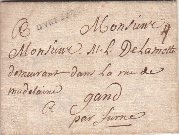 DYPRES
A Monsieur
Monsieur St. L. Delamotte
demeurant dans la rue de
madelaine
A gand
par furne